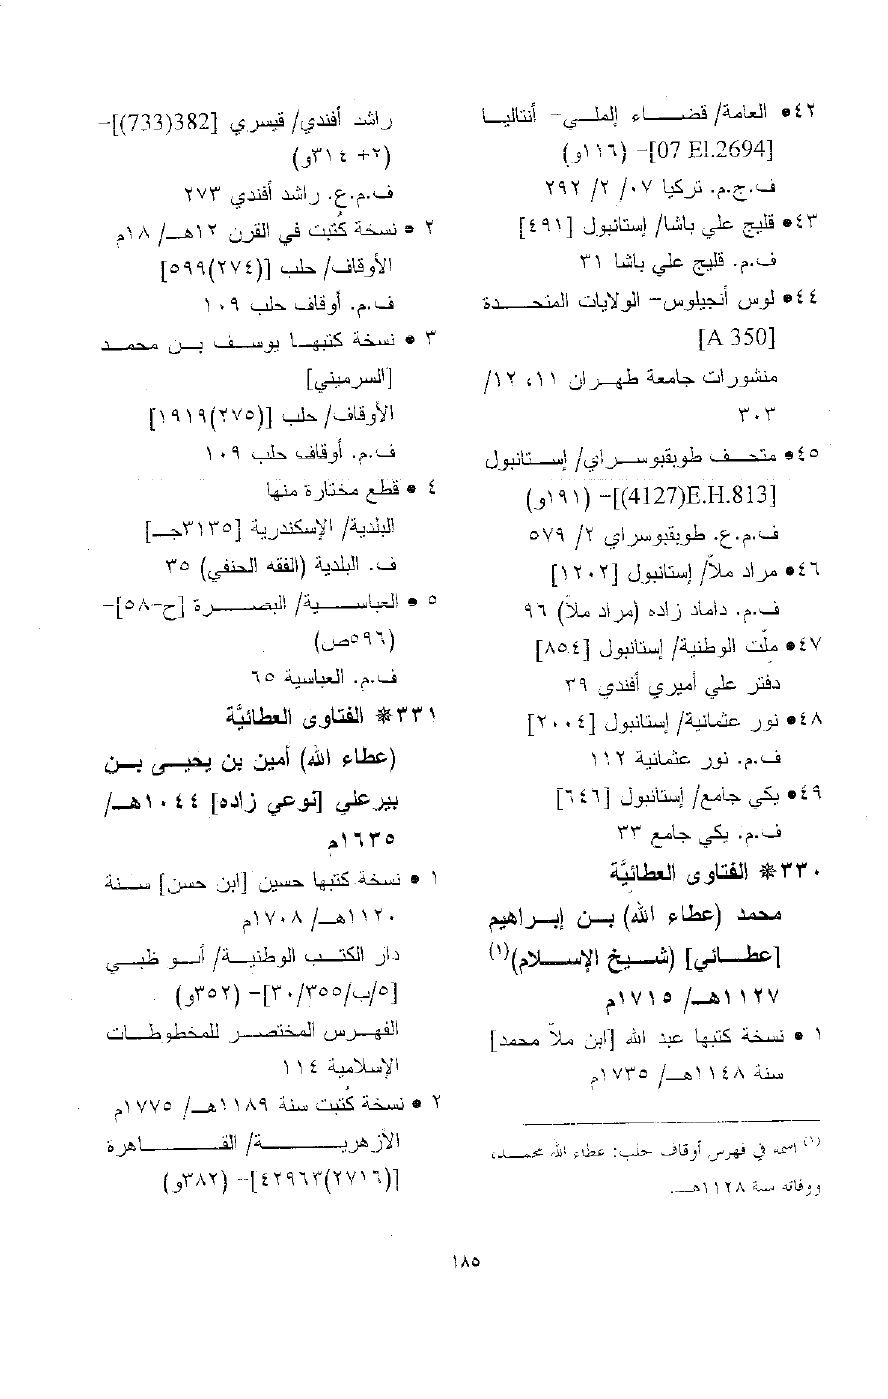 ٤٢● العامة/ قضاء إلملي- أنتاليا
[07 El.2694]- (١١٦و)
ف.ج.م. تركيا ٠٧/ ٢/ ٢٩٢
٤٣● قليج علي باشا/ إستانبول [٤٩١]
ف.م. قليج علي باشا ٣١
٤٤● لوس أنجيلوس- الولايات المتحدة
[A 350]
منشورات جامعة طهران ١١، ١٢/
٣٠٣
٤٥● متحف طوبقبوسراي/ إستانبول
[E.H.813(4127)]- (١٩١و)
ف.م.ع. طوبقبوسراي ٢/ ٥٧٩
٤٦● مراد ملاّ/ إستانبول [١٢٠٢]
ف.م. داماد زاده (مراد ملاّ) ٩٦
٤٧● ملّت الوطنية/ إستانبول [٨٥٤]
دفتر علي أميري أفندي ٣٩
٤٨● نور عثمانية/ إستانبول [٢٠٠٤]
ف.م. نور عثمانية ١١٢
٤٩● يكي جامع/ إستانبول [٦٤٦]
ف.م. يكي جامع ٣٣
٣٣٠❋ الفتاوى العطائيَّة
محمد (عطاء الله) بن إبراهيم
[عطائي] (شيخ الإسلام)(١)
١١٢٧هـ/ ١٧١٥م
١ ● نسخة كتبها عبد الله [ابن ملاّ محمد]
سنة ١١٤٨هـ/ ١٧٣٥م
(١) اسمه في فهرس أوقاف حلب: عطاء الله محمد،
ووفاته سنة ١١٢٨هـ.
راشد أفندي/ قيسري [382(733)]-
(٢+ ٣١٤و)
ف.م.ع. راشد أفندي ٢٧٣
٢ ● نسخة كُتبت في القرن ١٢هـ/ ١٨م
الأوقاف/ حلب [(٢٧٤)٥٩٩]
ف.م. أوقاف حلب ١٠٩
٣ ● نسخة كتبها يوسف بن محمد
[السرميني]
الأوقاف/ حلب [(٢٧٥)١٩١٩]
ف.م. أوقاف حلب ١٠٩
٤ ● قطع مختارة منها
البلدية/ الإسكندرية [٣١٣٥جـ]
ف. البلدية (الفقه الحنفي) ٣٥
٥ ● العباسية/ البصرة [ح-٥٨]-
(٥٩٦ص)
ف.م. العباسية ٦٥
٣٣١❋ الفتاوى العطائيَّة
(عطاء الله) أمين بن يحيى بن
بيرعلي [نوعي زاده] ١٠٤٤هـ/
١٦٣٥م
١ ● نسخة كتبها حسين [ابن حسن] سنة
١١٢٠هـ/ ١٧٠٨م
دار الكتب الوطنية/ أبو ظبي
[٥/ب/٣٠/٣٥٥]- (٣٥٢و)
الفهرس المختصر للمخطوطات
الإسلامية ١١٤
٢ ● نسخة كُتبت سنة ١١٨٩هـ/ ١٧٧٥م
الأزهرية/ القاهرة
[(٢٧١٦)٤٢٩٦٣]- (٣٨٢و)
١٨٥